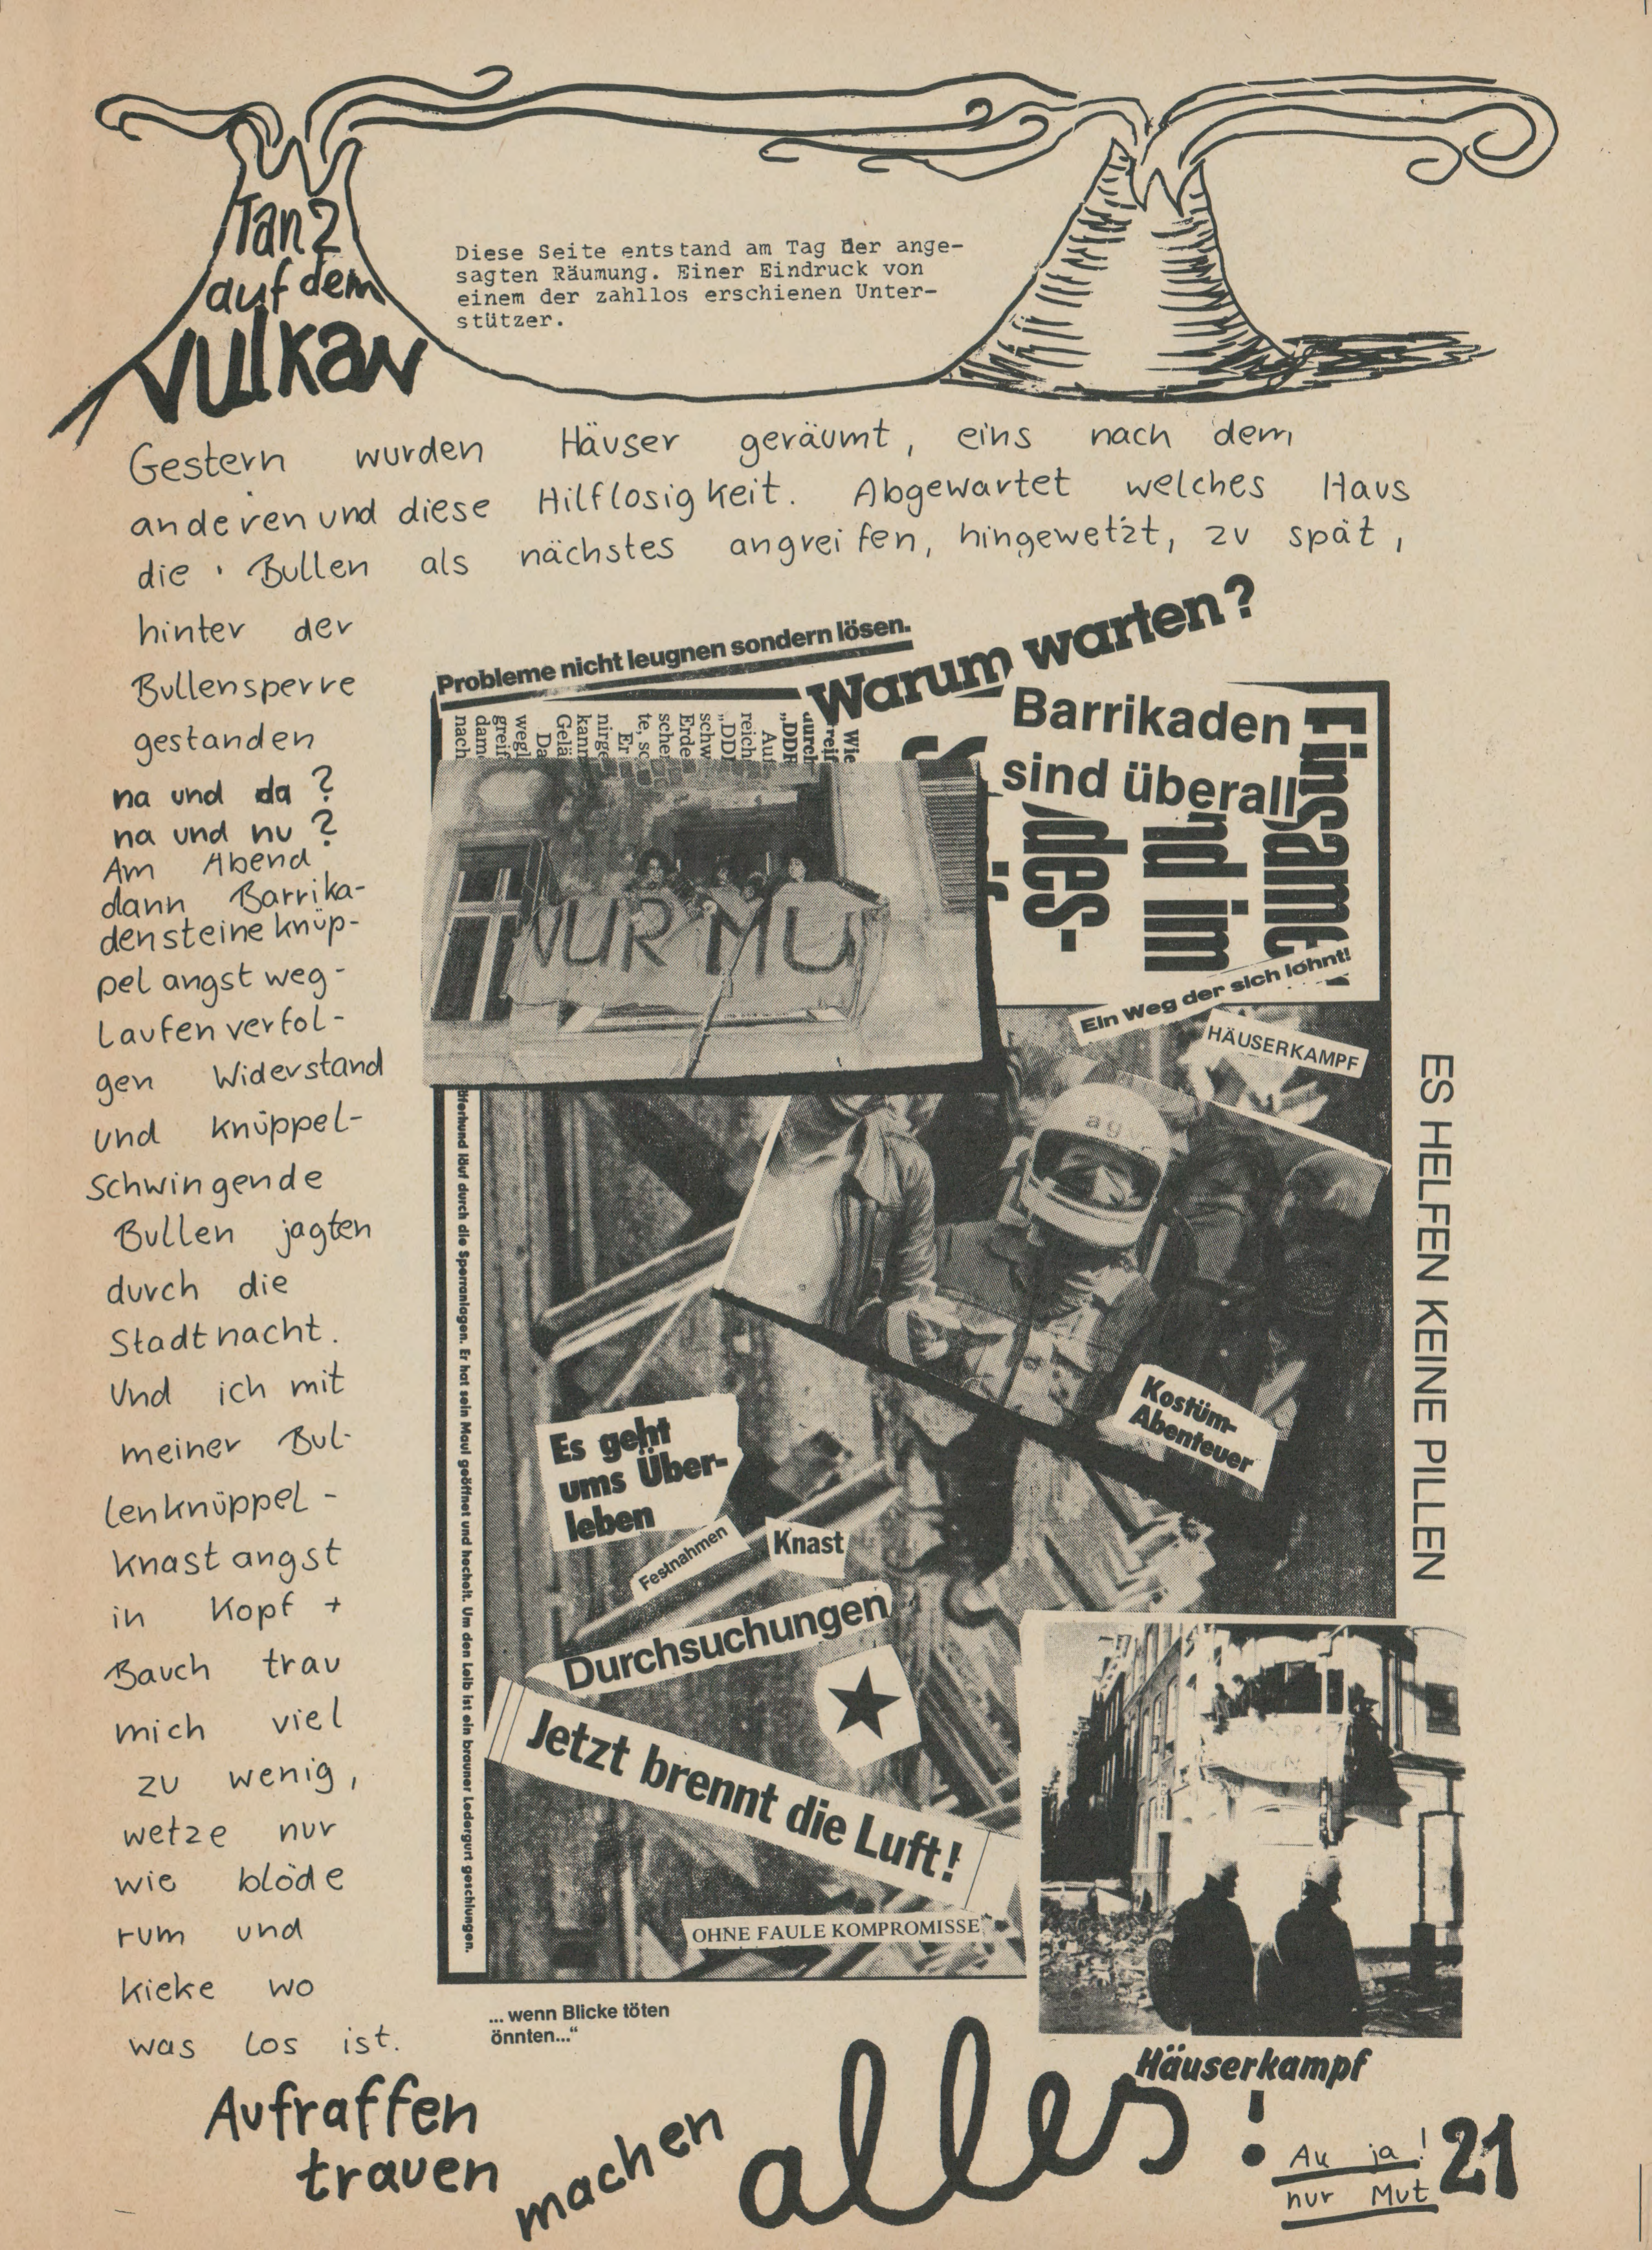 Tanz
auf dem
Vulkan
Diese Seite entstand am Tag der ange-
sagten Räumung. Einer Eindruck von
einem der zahllos erschienen Unter-
stützer.
Gestern wurden Häuser geräumt, eins nach dem
anderen und diese Hilflosigkeit. Abgewartet welches Haus
die Bullen als nächstes angreifen, hingewetzt, zu spät,
hinter der
Bullensperre
gestanden
na und da ?
na und nu ?
Am Abend
dann Barrika-
densteineknüp-
pelangstweg-
laufenverfol-
gen Widerstand
und knüppel-
schwingende
Bullen jagten
durch die
Stadtnacht.
Und ich mit
meiner Bul-
lenknüppel-
knastangst
in Kopf +
Bauch trau
mich viel
zu wenig,
wetze nur
wie blöde
rum und
kieke wo
was los ist.
Probleme nicht leugnen sondern lösen.
Warum warten?
Barrikaden
sind überall
Einsamt
nd im
des-
Wie
reif
durch
"DDR
Auf
reich
"DDR
schw
Erde
schen
te, so
Er
nirge
kann
Gelä
Da
wegl
greif
dame
nach
NUR MU
Ein Weg der sich lohnt!
HÄUSERKAMPF
agv
äferhund läuf durch die Sperranlagen. Er hat sein Maul geöffnet und hechelt. Um den Leib ist ein brauner Ledergurt geschlungen.
Kostüm-
Abenteuer
Es geht
ums Über-
leben
Festnahmen
Knast
Durchsuchungen
Jetzt brennt die Luft!
OHNE FAULE KOMPROMISSE
ES HELFEN KEINE PILLEN
... wenn Blicke töten
önnten..."
Häuserkampf
Aufraffen
trauen
machen
alles!
Au ja!
nur Mut
21